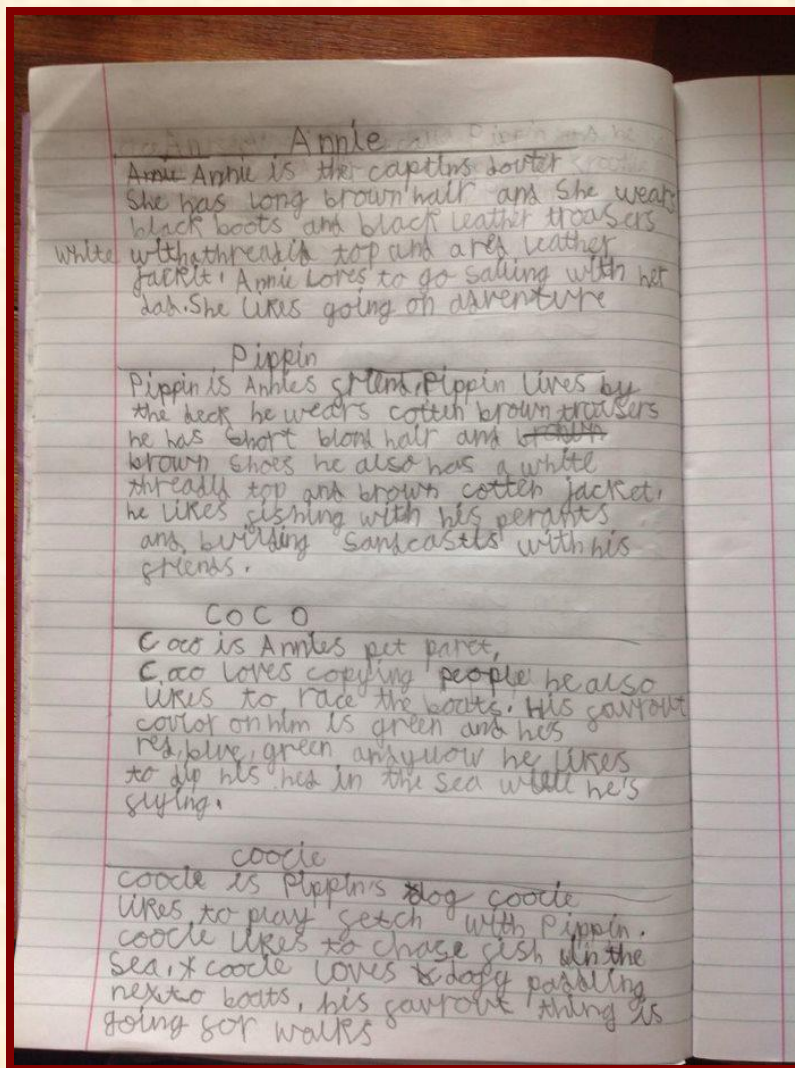 Annie
Amie Annie is the captins douter
She has long brown hair and She wears
black boots and black leather troasers
white withathreadid top and ared leather
jackit. Annie loves to go salling with her
dad. She likes going on adventure
Pippin
Pippin is Annies friend, Pippin lives by
the beck he wears cotten brown trousers
he has short blond hair and
brown shoes he also has a white
threadid top and brown cotten jacket.
he likes fishing with his perants
and building sandcastls with his
friends.
COCO
Coco is Annies pet paret,
Coco loves copying people he also
likes to race the boats. His favrout
coulor on him is green and he's
red, blue, green and yuow he likes
to dip his hed in the sea will he's
flying.
coocie
coocie is Pippin's dog coocie
likes to play fetch with Pippin.
coocie likes to chase fish in the
sea, coocie loves dogy paddling
next to boats, his favrout thing is
going for walks